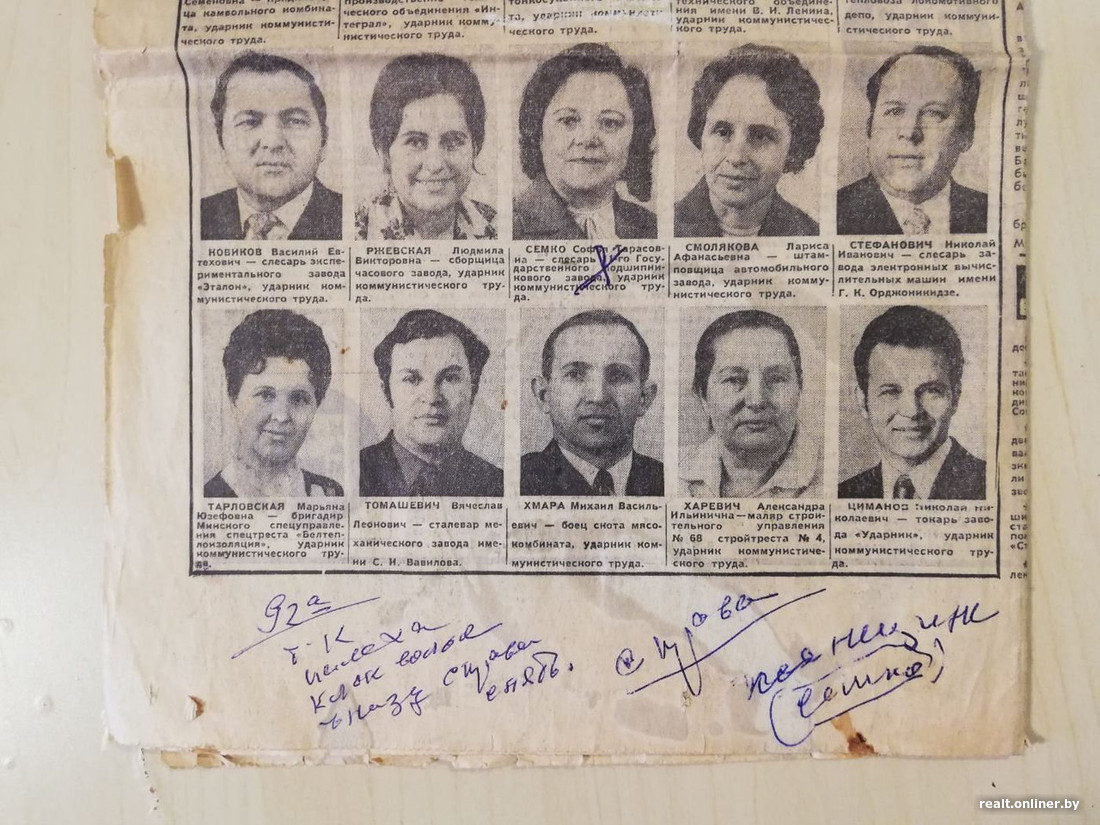 ца камвольного комбина-
та, ударник коммунисти-
ческого труда.
ческого объединения «Ин-
теграл», ударник комму-
нистического труда.
та, ударник коммунисти-
ческого труда.
технического объедине-
ния имени В. И. Ленина,
ударник коммунистичес-
кого труда.
тепловоза локомотивного
депо, ударник коммуни-
стического труда.
НОВИКОВ Василий Ев-
техович — слесарь экспе-
риментального завода
«Эталон», ударник ком-
мунистического труда.
РЖЕВСКАЯ Людмила
Викторовна — сборщица
часового завода, ударник
коммунистического тру-
да.
СЕМКО Софья Тарасов-
на — слесарь Госу-
дарственного подшипни-
кового завода, ударник
коммунистического тру-
да.
СМОЛЯКОВА Лариса
Афанасьевна — штам-
повщица автомобильного
завода, ударник комму-
нистического труда.
СТЕФАНОВИЧ Николай
Иванович — слесарь за-
вода электронных вычис-
лительных машин имени
Г. К. Орджоникидзе.
ТАРЛОВСКАЯ Марьяна
Юзефовна — бригадир
Минского спецуправле-
ния спецтреста «Белтеп-
лоизоляция», ударник
коммунистического тру-
да.
ТОМАШЕВИЧ Вячеслав
Леонович — сталевар ме-
ханического завода име-
ни С. И. Вавилова.
ХМАРА Михаил Василь-
евич — боец скота мясо-
комбината, ударник ком-
мунистического труда.
ХАРЕВИЧ Александра
Ильинична — маляр строи-
тельного управления
№ 68 стройтреста № 4,
ударник коммунистиче-
ского труда.
ЦИМАНОВ Николай Ни-
колаевич — токарь заво-
да «Ударник», ударник
коммунистического тру-
да.
т. К
справа
(Семко)
realt.onliner.by